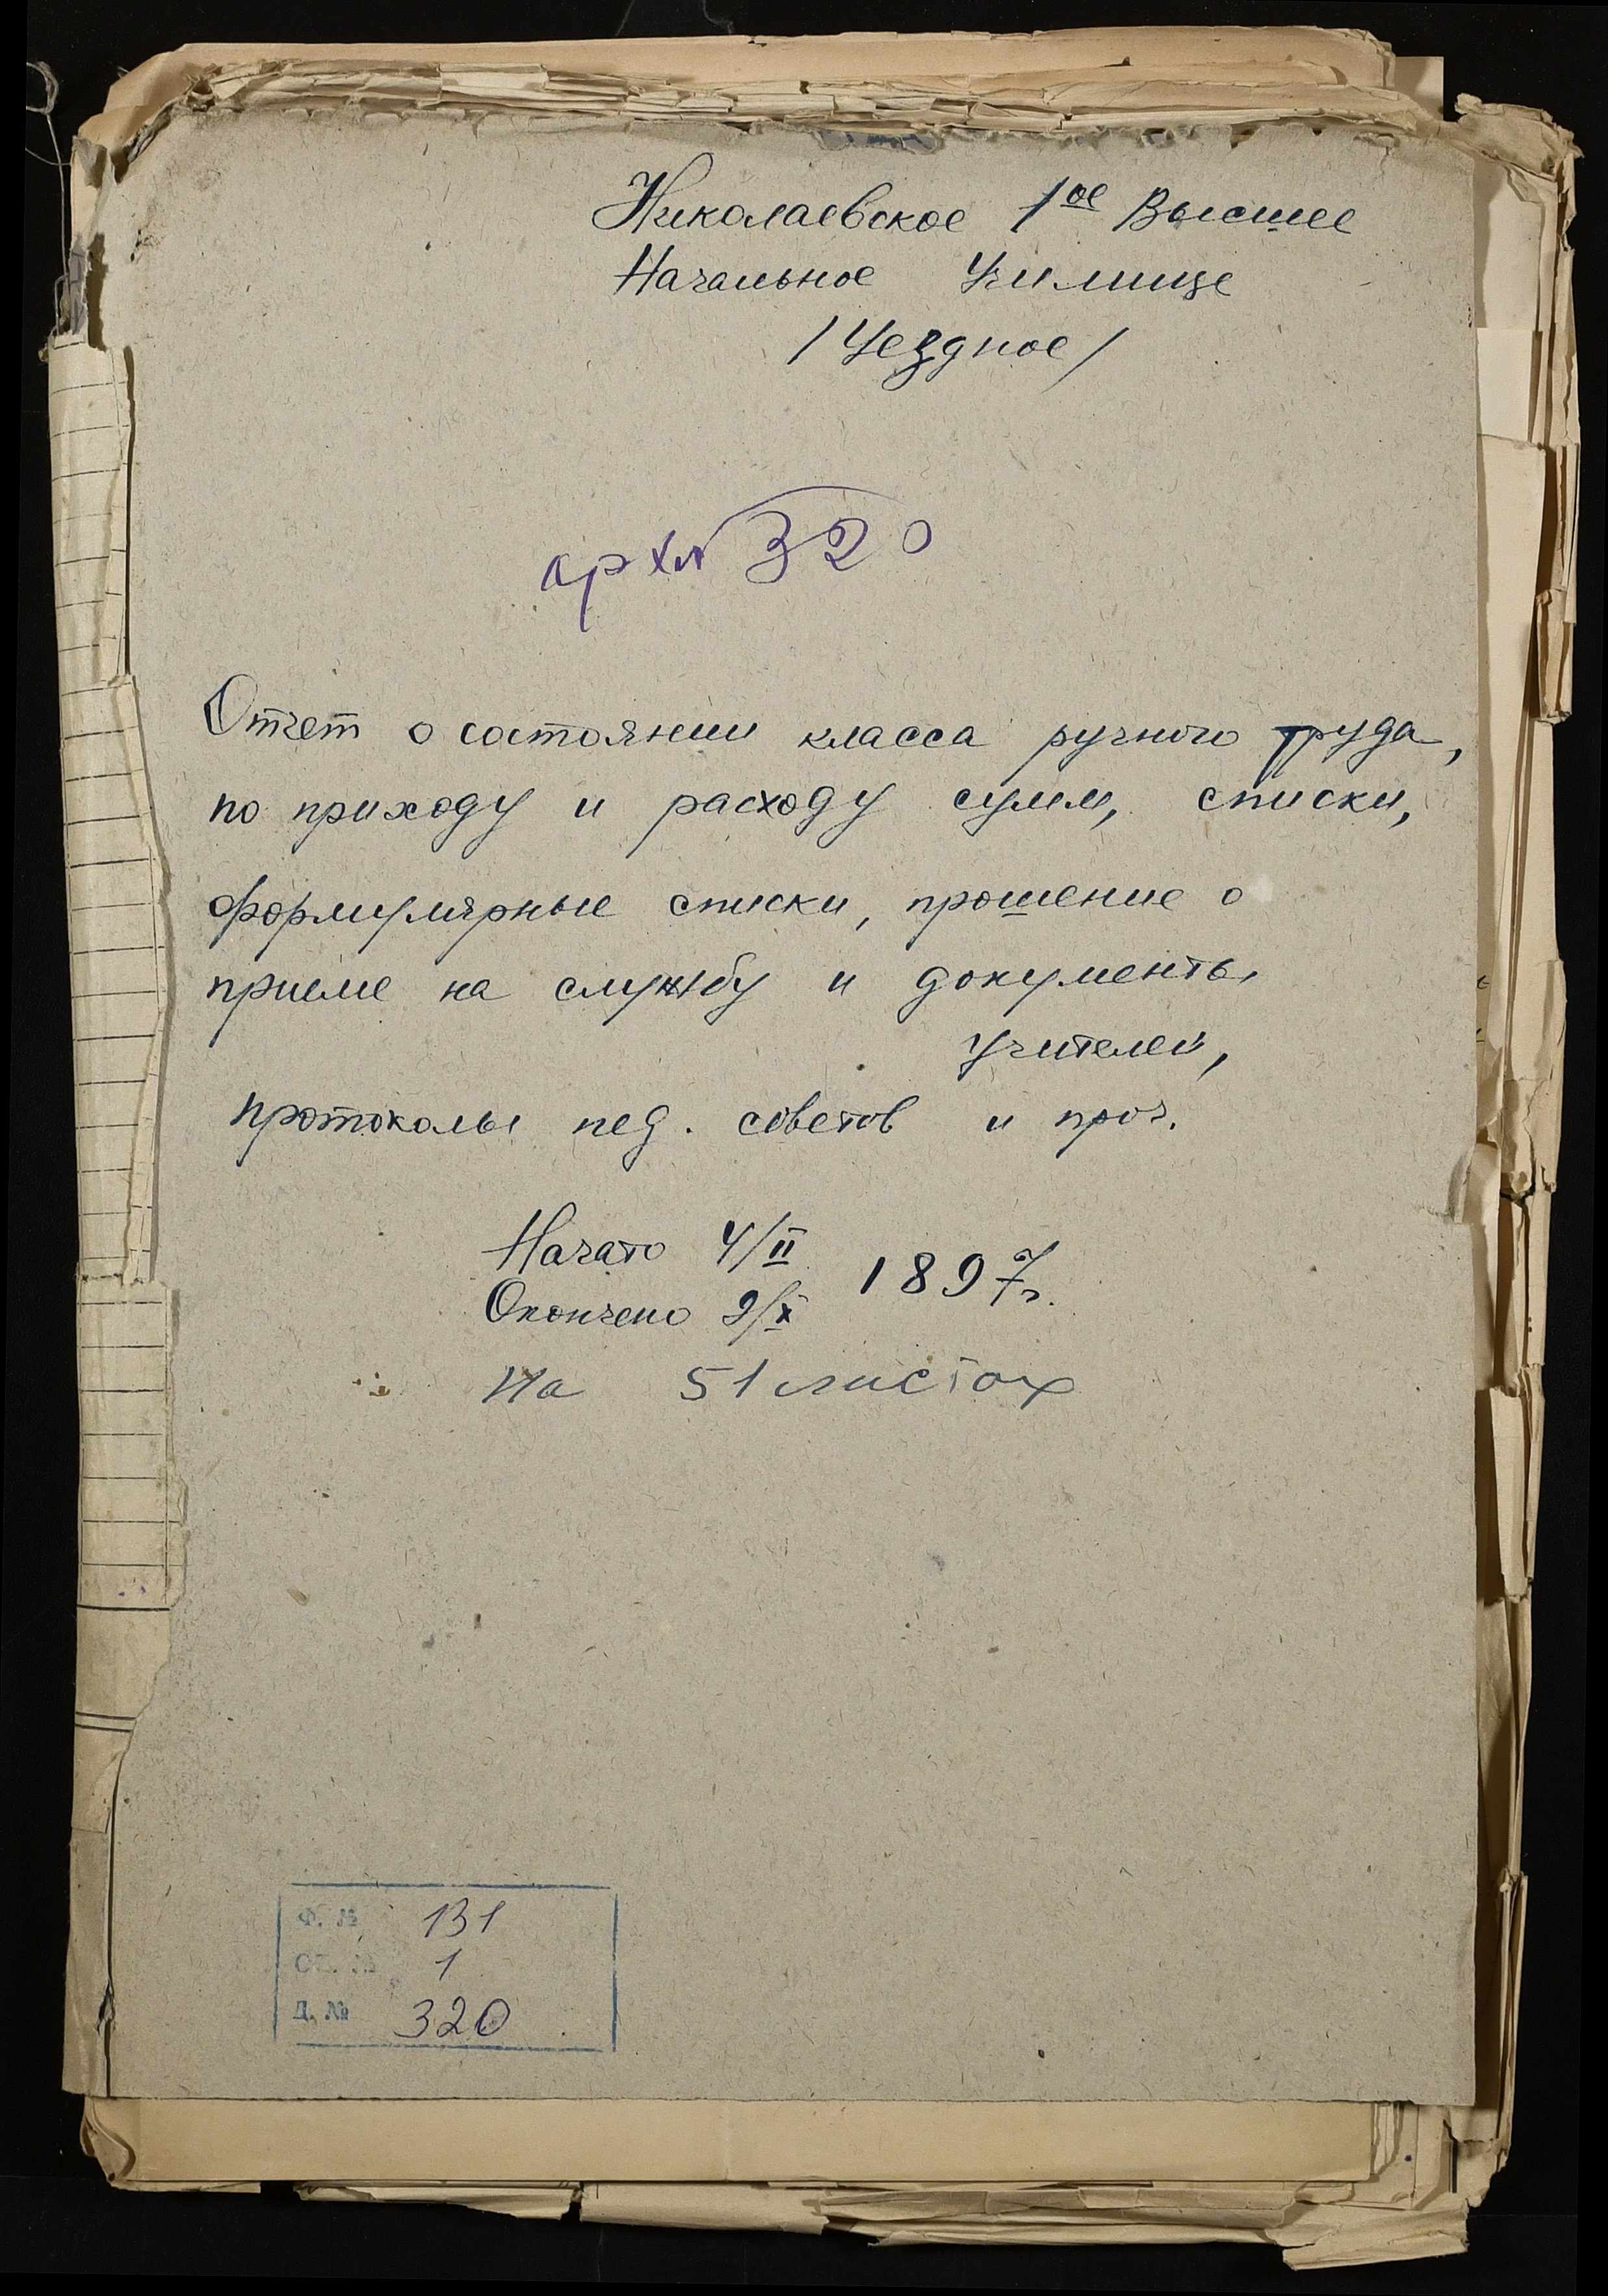 Николаевское 1ое Высшее
Начальное Училище
/Уездное/
арх № 320
Отчет о состоянии класса ручного труда,
по приходу и расходу сумм, списки,
формулярные списки, прошение о
приеме на службу и документы
учителей,
протоколы пед. советов и проч.
Начато 4/II
1897г.
Окончено 9/X
На 51 листах
Ф. № 131
Оп. № 1
Д. № 320